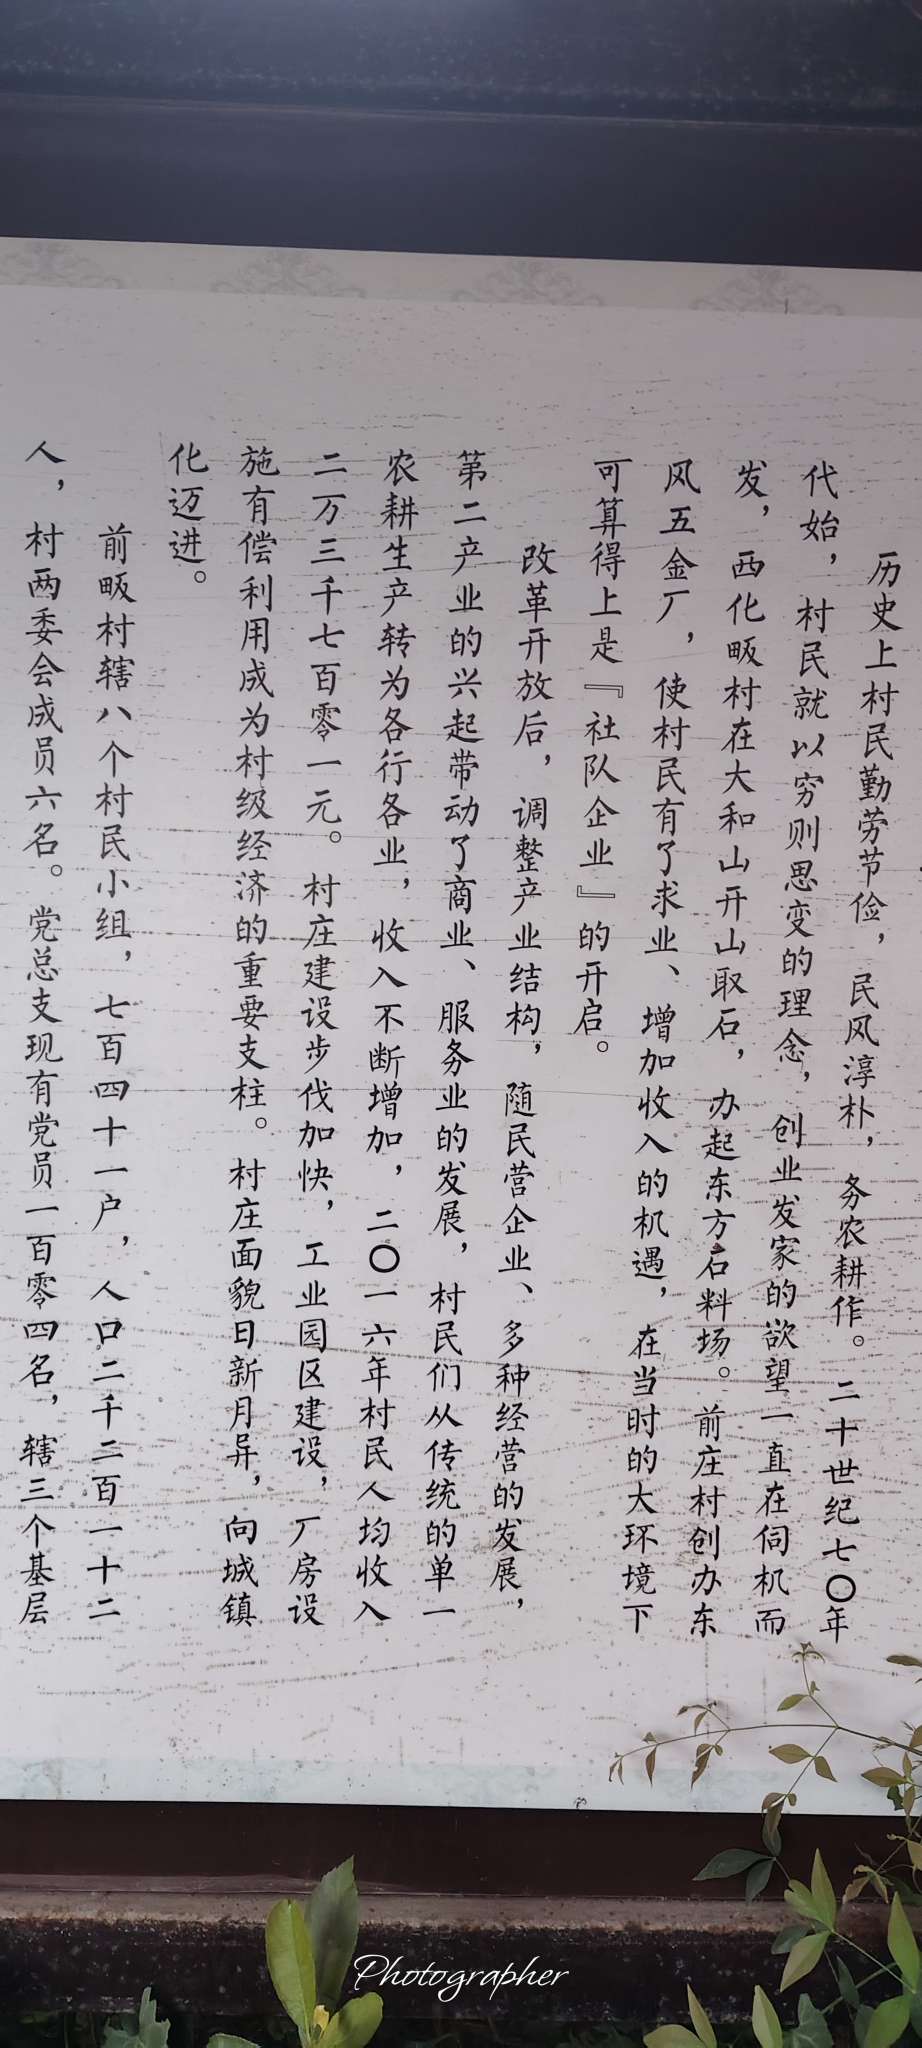 历史上村民勤劳节俭，民风淳朴，务农耕作。二十世纪七〇年
代始，村民就以穷则思变的理念，创业发家的欲望一直在伺机而
发，西化畈村在大和山开山取石，办起东方石料场。前庄村创办东
风五金厂，使村民有了求业、增加收入的机遇，在当时的大环境下
可算得上是『社队企业』的开启。
改革开放后，调整产业结构，随民营企业、多种经营的发展，
第二产业的兴起带动了商业、服务业的发展，村民们从传统的单一
农耕生产转为各行各业，收入不断增加，二〇一六年村民人均收入
二万三千七百零一元。村庄建设步伐加快，工业园区建设，厂房设
施有偿利用成为村级经济的重要支柱。村庄面貌日新月异，向城镇
化迈进。
前畈村辖八个村民小组，七百四十一户，人口二千二百一十二
人，村两委会成员六名。党总支现有党员一百零四名，辖三个基层
Photographer